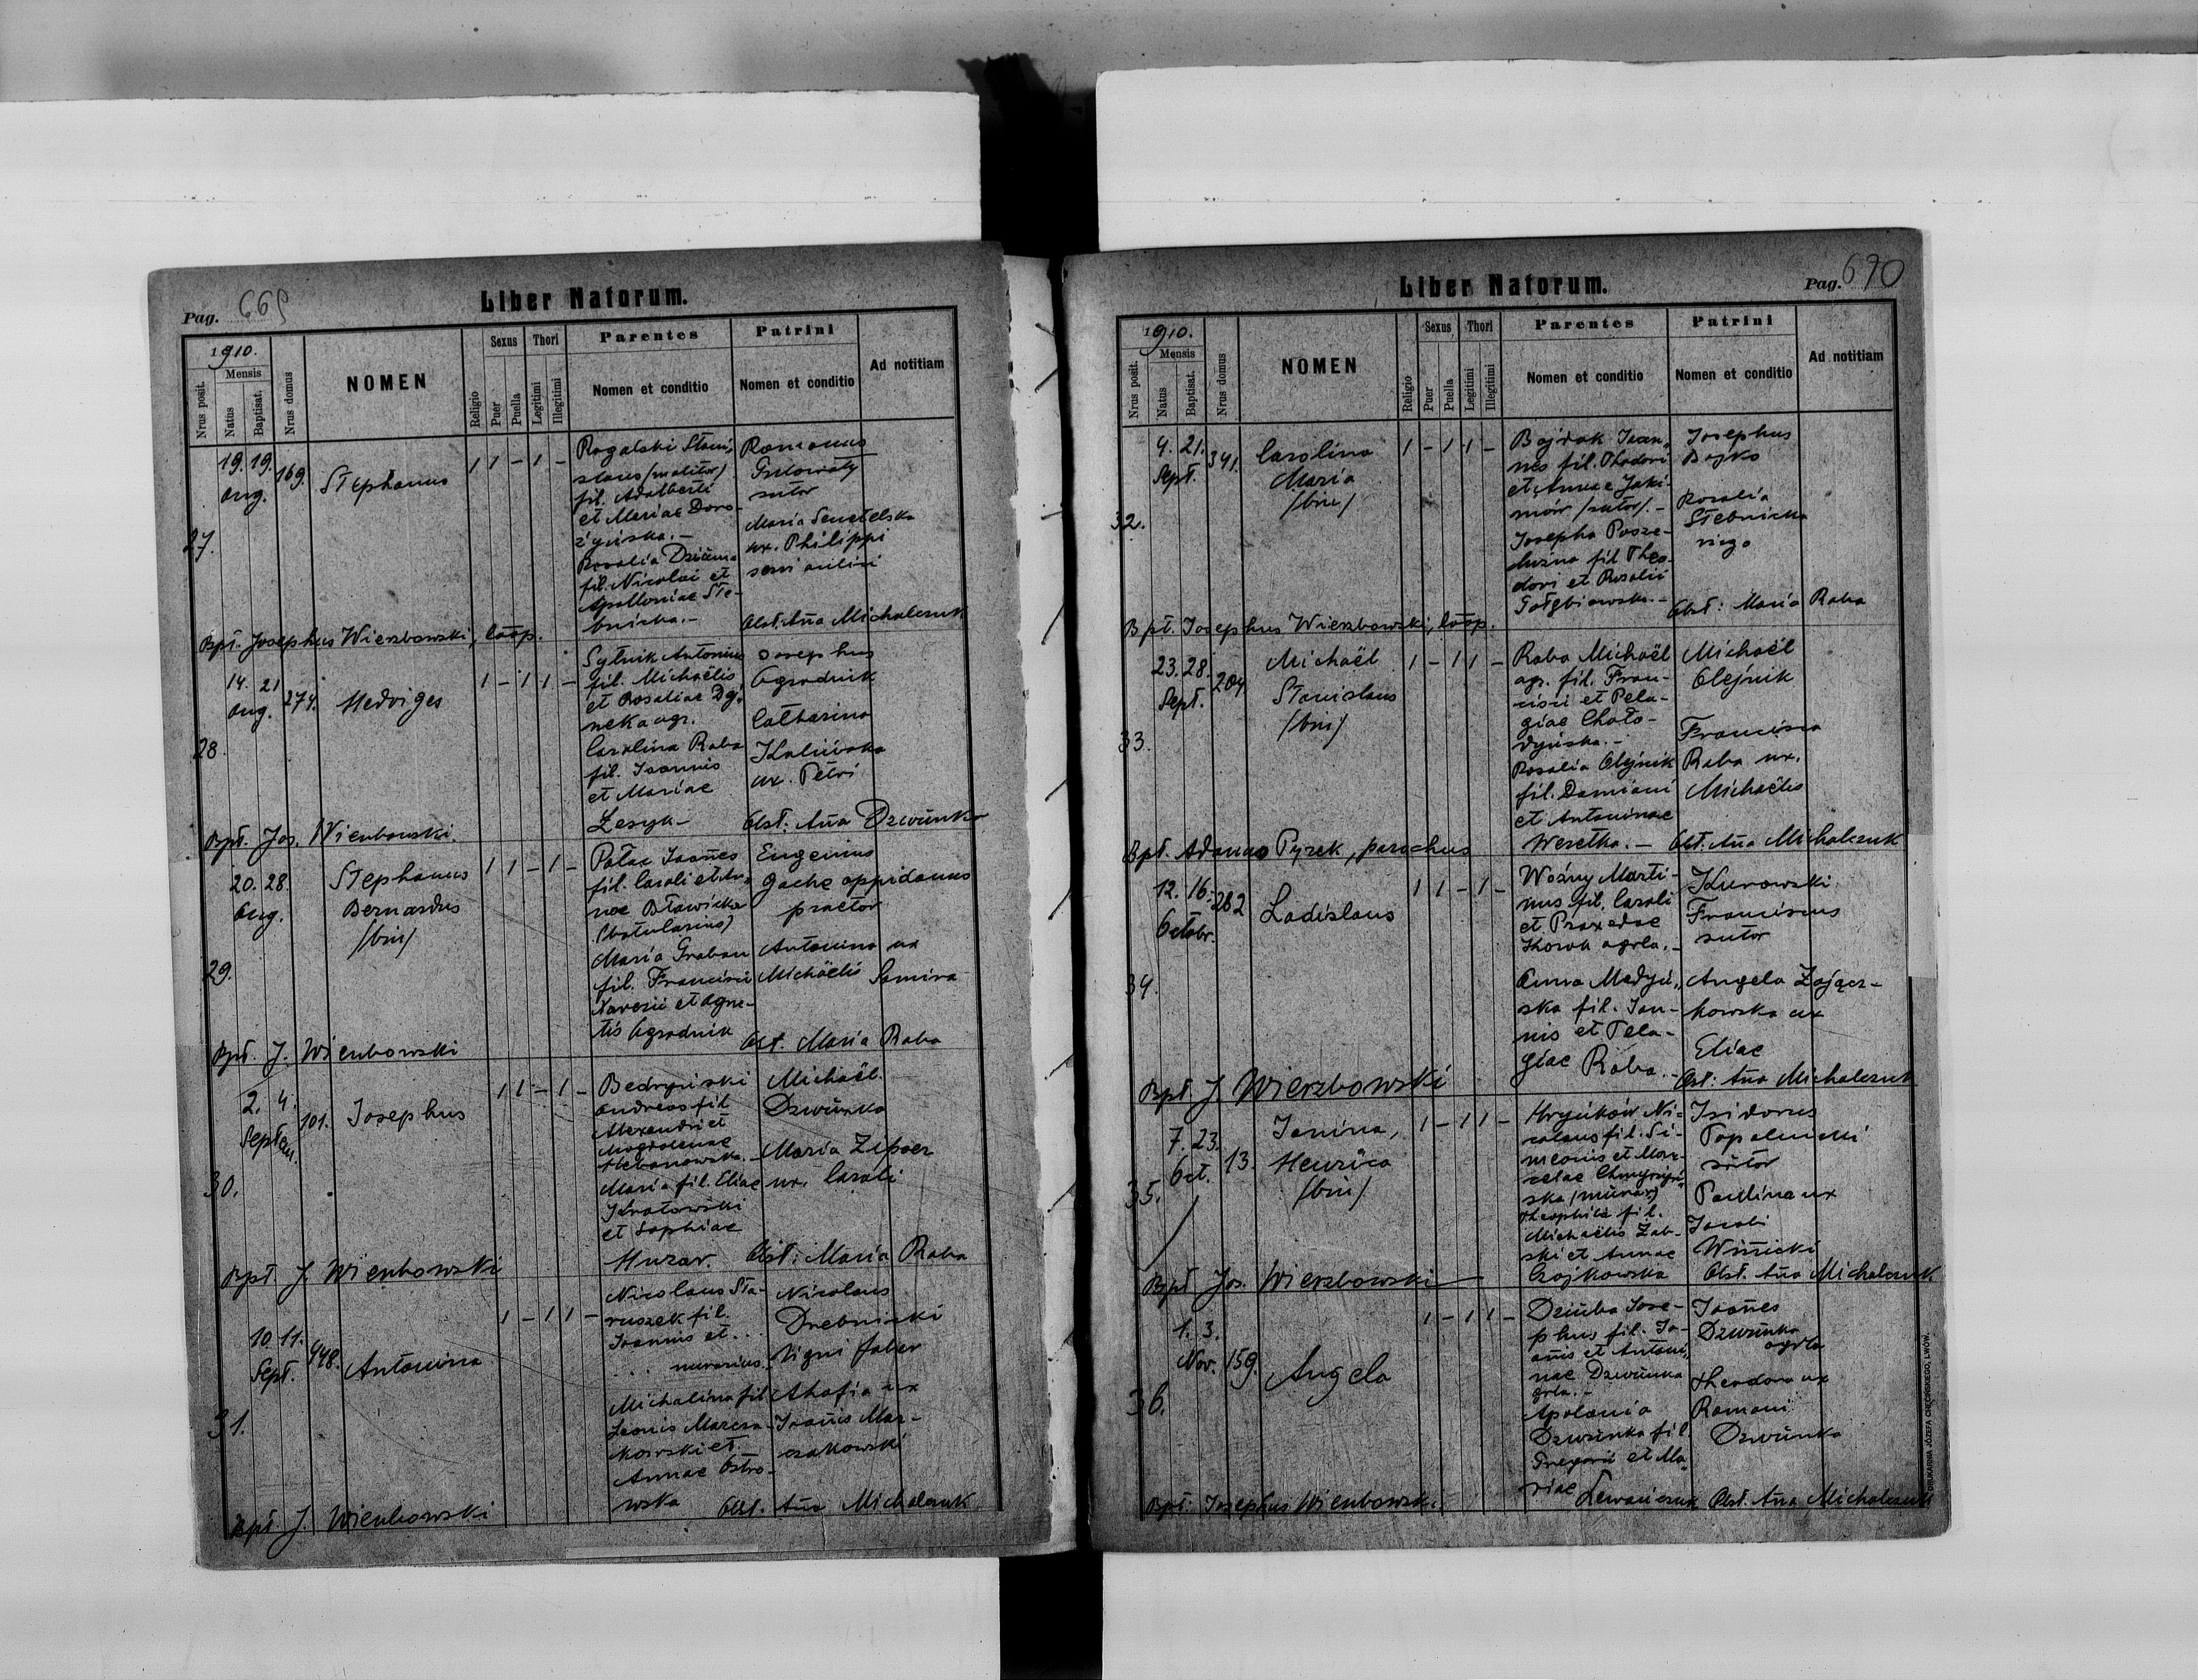 Pag. 669
Liber Natorum.
1910.
Mensis
Nrus posit.
Natus
Baptisat.
Nrus domus
NOMEN
Religio
Sexus
Puer
Puella
Thori
Legitimi
Illegitimi
Parentes
Nomen et conditio
Patrini
Nomen et conditio
Ad notitiam
27.
19. 19.
Aug.
169.
Stephanus
1 1 - 1 -
Rogalski Stani-
slaus (molitor)
fil. Adalberti
et Mariae Doro-
żyńska. -
Rosalia Dziuma
fil. Nicolai et
Apolloniae Ste-
bnicka. -
Romanus
Gutowaty
sutor
Maria
ux. Philippi
servi aulici
Obst. Aña Michalczuk
Bpt. Josephus Wierzbowski, Coop.
28.
14. 21
Aug.
274.
Hedviges
1 - 1 1 -
Sytnik Antonius
fil. Michaëlis
et Rosaliae Dy-
neka agr.
Carolina Raba
fil. Joannis
et Mariae
Lesyk -
Josephus
Ogrodnik
Catharina
Kalińska
ux. Petri
Obst. Aña Dzwinka
Bpt. Jos. Wierzbowski.
29.
20. 28.
Aug.
Stephanus
Bernardus
/bin/
1 1 - 1 -
Pałac Joañes
fil. Caroli et An-
nae Bławicka
Maria Graban
fil. Francisci
Xaverii et Agne-
tis Ogrodnik
Eugenius
Gache oppidanus
praetor
Antonina ux
Michaëlis Samira
Obst. Maria Raba
Bpt. J. Wierzbowski
30.
2. 4.
Septem.
101.
Josephus
1 1 - 1 -
Bedryński
Andreas fil
Alexandri et
Magdalenae
Maria fil. Eliae
et Sophiae
Huzar.
Michaël
Dzwinka
Maria Zipser
ux. Caroli
Obst: Maria Raba
Bpt. J. Wierzbowski
31.
10. 11.
Sept.
448.
Antonina
1 - 1 1 -
Nicolaus Sta-
ruszek fil.
Joannis et . . .
. . murarius.
Michalina fil
Leonis Marcza-
kowski et
Annae Ostro-
wska
Nicolaus
Drebnicki
ligni faber
Ahafia ux
Joañis Mar-
czakowski
Obst. Aña Michalczuk
Bpt J. Wierzbowski
Liber Natorum.
Pag. 670
1910.
Mensis
Nrus posit.
Natus
Baptisat.
Nrus domus
NOMEN
Religio
Sexus
Puer
Puella
Thori
Legitimi
Illegitimi
Parentes
Nomen et conditio
Patrini
Nomen et conditio
Ad notitiam
32.
4. 21.
Sept.
341.
Carolina
Maria
/bin/
1 - 1 1 -
Bojdak Joan-
nes fil. Theodori
et Annae Jaki-
mów /sutor/. -
Josepha Posze-
luzna fil Theo-
dori et Rosalii
Gołębiowska. -
Josephus
Bojko
Rosalia
Stebnicka
virgo
Obst: Maria Raba
Bpt. Josephus Wierzbowski, Coop.
33.
23. 28.
Sept.
204
Michaël
Stanislaus
/bin/
1 - 1 1 -
Raba Michaël
agr. fil. Fran-
cisci et Pela-
giae Choło-
dyńska. -
Rosalia Olejnik
fil. Damiani
et Antoninae
Weretka. -
Michaël
Olejnik
Francisca
Raba ux.
Michaëlis
Obst. Aña Michalczuk
Bpt. Adamus Pyzek, parochus
34.
12. 16.
Octobr.
282
Ladislaus
1 1 - 1 -
Woźny Marti-
nus fil. Caroli
et Praxedae
Kozak agrla. -
Anna Medyń-
ska fil. Joan-
nis et Pela-
giae Raba. -
Kurowski
Franciscus
sutor
Angela Zającz-
kowska ux
Eliae
Obst: Aña Michalczuk
Bpt. J. Wierzbowski
35.
7. 23.
Oct.
13.
Janina,
Henrica
/bin/
1 - 1 1 -
Hryńków Ni-
colaus fil. Si-
meonis et Mar-
celae
ska (murar.)
Theophila fil.
Michaëlis Zab-
ski et Annae
Czajkowska
Isidorus
Popalnicki
sutor
Paulina ux
Jacobi
Winicki
Obst. Aña Michalczuk
Bpt. Jos. Wierzbowski
36.
1. 3.
Nov.
159.
Angela
1 - 1 1 -
Dziuba Jose-
phus fil. Jo-
añis et Antoni-
nae Dzwinka
agrla. -
Apolonia
Dzwinka fil
Gregorii et Ma-
riae Lewańczuk
Joañes
Dzwinka
agrla
Theodora ux
Romani
Dzwinka
Obst. Aña Michalczuk
Bpt: Josephus Wierzbowski.
DRUKARNIA JÓZEFA CHĘCIŃSKIEGO, LWÓW.